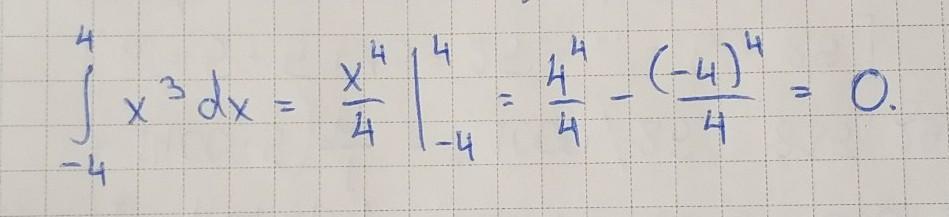 ∫_{-4}^{4} x³ dx = x⁴/4 |_{-4}^{4} = 4⁴/4 - (-4)⁴/4 = 0.